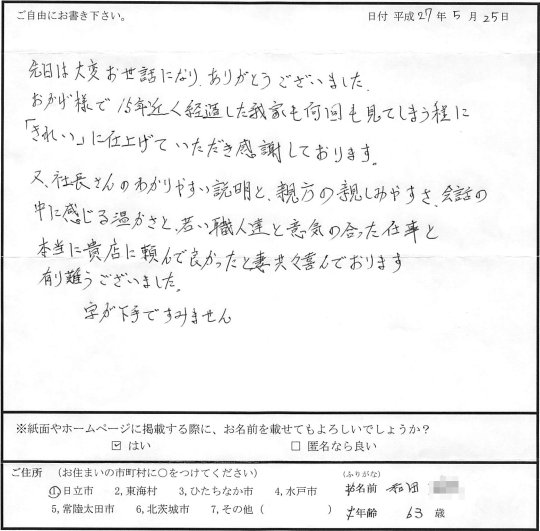 ご自由にお書き下さい。 日付 平成 27 年 5 月 25 日
先日は大変お世話になり、ありがとうございました。
おかげ様で15年近く経過した我家も何回も見てしまう程に
「きれい」に仕上げていただき感謝しております。
又、社長さんのわかりやすい説明と、親方の親しみやすさ、会話の
中に感じる温かさと、若い職人達と意気の合った仕事と
本当に貴店に頼んで良かったと妻共々喜んでおります
有り難うございました。
字が下手ですみません
※紙面やホームページに掲載する際に、お名前を載せてもよろしいでしょうか?
☑ はい □ 匿名なら良い
ご住所 (お住まいの市町村に○をつけてください)
①日立市 2,東海村 3,ひたちなか市 4,水戸市
5,常陸太田市 6,北茨城市 7,その他( )
(ふりがな)
お名前 和田
年齢 63 歳